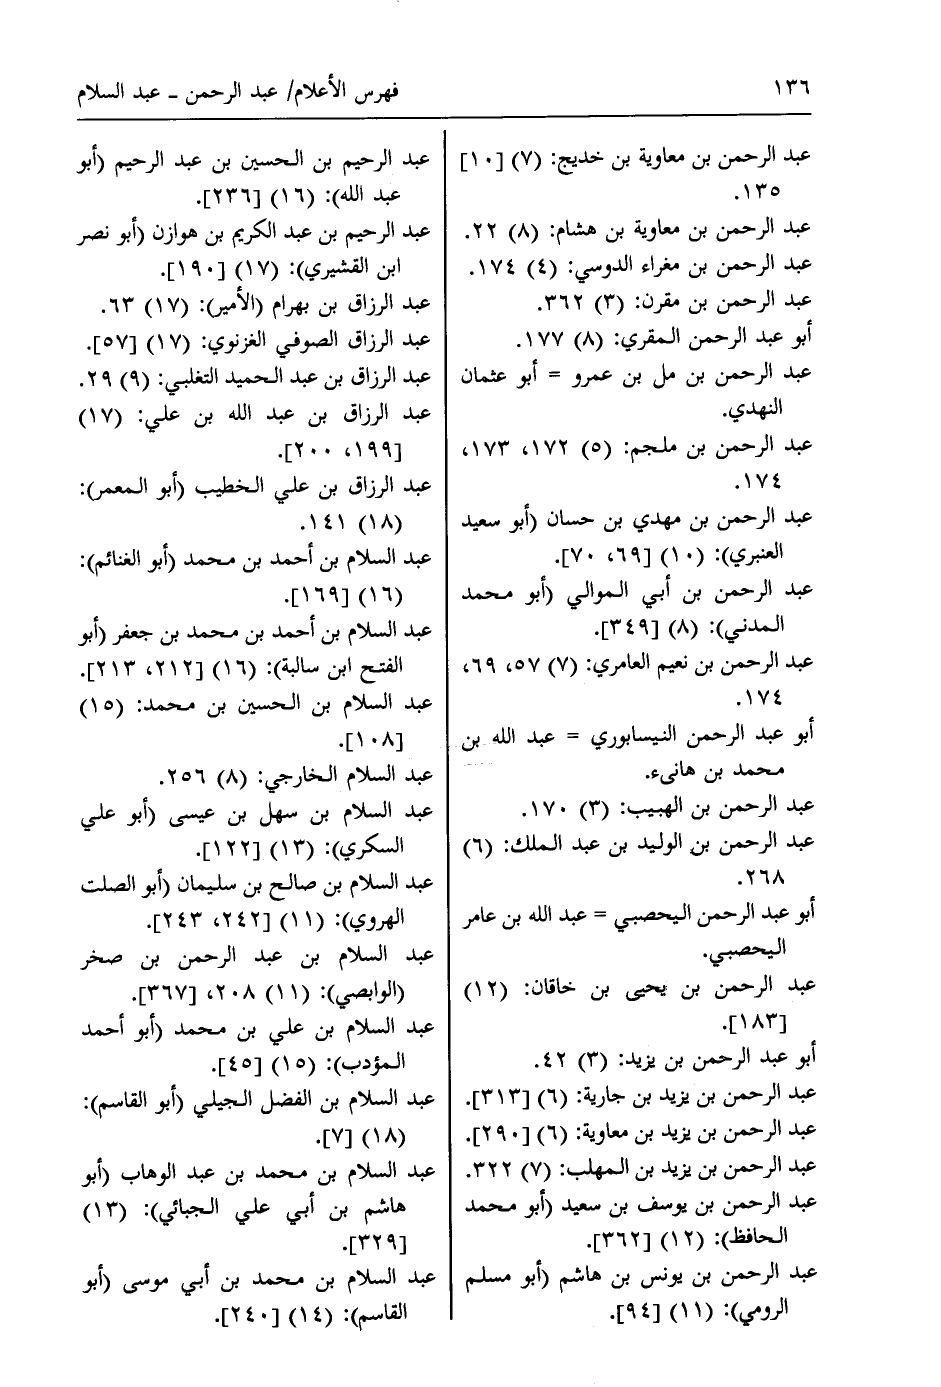 ١٣٦
فهرس الأعلام/ عبد الرحمن ـ عبد السلام
عبد الرحمن بن معاوية بن خديج: (٧) [١٠]
١٣٥.
عبد الرحمن بن معاوية بن هشام: (٨) ٢٢.
عبد الرحمن بن مغراء الدوسي: (٤) ١٧٤.
عبد الرحمن بن مقرن: (٣) ٣٦٢.
أبو عبد الرحمن المقري: (٨) ١٧٧.
عبد الرحمن بن مل بن عمرو = أبو عثمان
النهدي.
عبد الرحمن بن ملجم: (٥) ١٧٢، ١٧٣،
١٧٤.
عبد الرحمن بن مهدي بن حسان (أبو سعيد
العنبري): (١٠) [٦٩، ٧٠].
عبد الرحمن بن أبي الموالي (أبو محمد
المدني): (٨) [٣٤٩].
عبد الرحمن بن نعيم العامري: (٧) ٥٧، ٦٩،
١٧٤.
أبو عبد الرحمن النيسابوري = عبد الله بن
محمد بن هانىء.
عبد الرحمن بن الهبيب: (٣) ١٧٠.
عبد الرحمن بن الوليد بن عبد الملك: (٦)
٢٦٨.
أبو عبد الرحمن اليحصبي = عبد الله بن عامر
اليحصبي.
عبد الرحمن بن يحيى بن خاقان: (١٢)
[١٨٣].
أبو عبد الرحمن بن يزيد: (٣) ٤٢.
عبد الرحمن بن يزيد بن جارية: (٦) [٣١٣].
عبد الرحمن بن يزيد بن معاوية: (٦) [٢٩٠].
عبد الرحمن بن يزيد بن المهلب: (٧) ٣٢٢.
عبد الرحمن بن يوسف بن سعيد (أبو محمد
الحافظ): (١٢) [٣٦٢].
عبد الرحمن بن يونس بن هاشم (أبو مسلم
الرومي): (١١) [٩٤].
عبد الرحيم بن الحسين بن عبد الرحيم (أبو
عبد الله): (١٦) [٢٣٦].
عبد الرحيم بن عبد الكريم بن هوازن (أبو نصر
ابن القشيري): (١٧) [١٩٠].
عبد الرزاق بن بهرام (الأمير): (١٧) ٦٣.
عبد الرزاق الصوفي الغزنوي: (١٧) [٥٧].
عبد الرزاق بن عبد الحميد التغلبي: (٩) ٢٩.
عبد الرزاق بن عبد الله بن علي: (١٧)
[١٩٩، ٢٠٠].
عبد الرزاق بن علي الخطيب (أبو المعمر):
(١٨) ١٤١.
عبد السلام بن أحمد بن محمد (أبو الغنائم):
(١٦) [١٦٩].
عبد السلام بن أحمد بن محمد بن جعفر (أبو
الفتح ابن سالبة): (١٦) [٢١٢، ٢١٣].
عبد السلام بن الحسين بن محمد: (١٥)
[١٠٨].
عبد السلام الخارجي: (٨) ٢٥٦.
عبد السلام بن سهل بن عيسى (أبو علي
السكري): (١٣) [١٢٢].
عبد السلام بن صالح بن سليمان (أبو الصلت
الهروي): (١١) [٢٤٢، ٢٤٣].
عبد السلام بن عبد الرحمن بن صخر
(الوابصي): (١١) ٢٠٨، [٣٦٧].
عبد السلام بن علي بن محمد (أبو أحمد
المؤدب): (١٥) [٤٥].
عبد السلام بن الفضل الجيلي (أبو القاسم):
(١٨) [٧].
عبد السلام بن محمد بن عبد الوهاب (أبو
هاشم بن أبي علي الجبائي): (١٣)
[٣٢٩].
عبد السلام بن محمد بن أبي موسى (أبو
القاسم): (١٤) [٢٤٠].